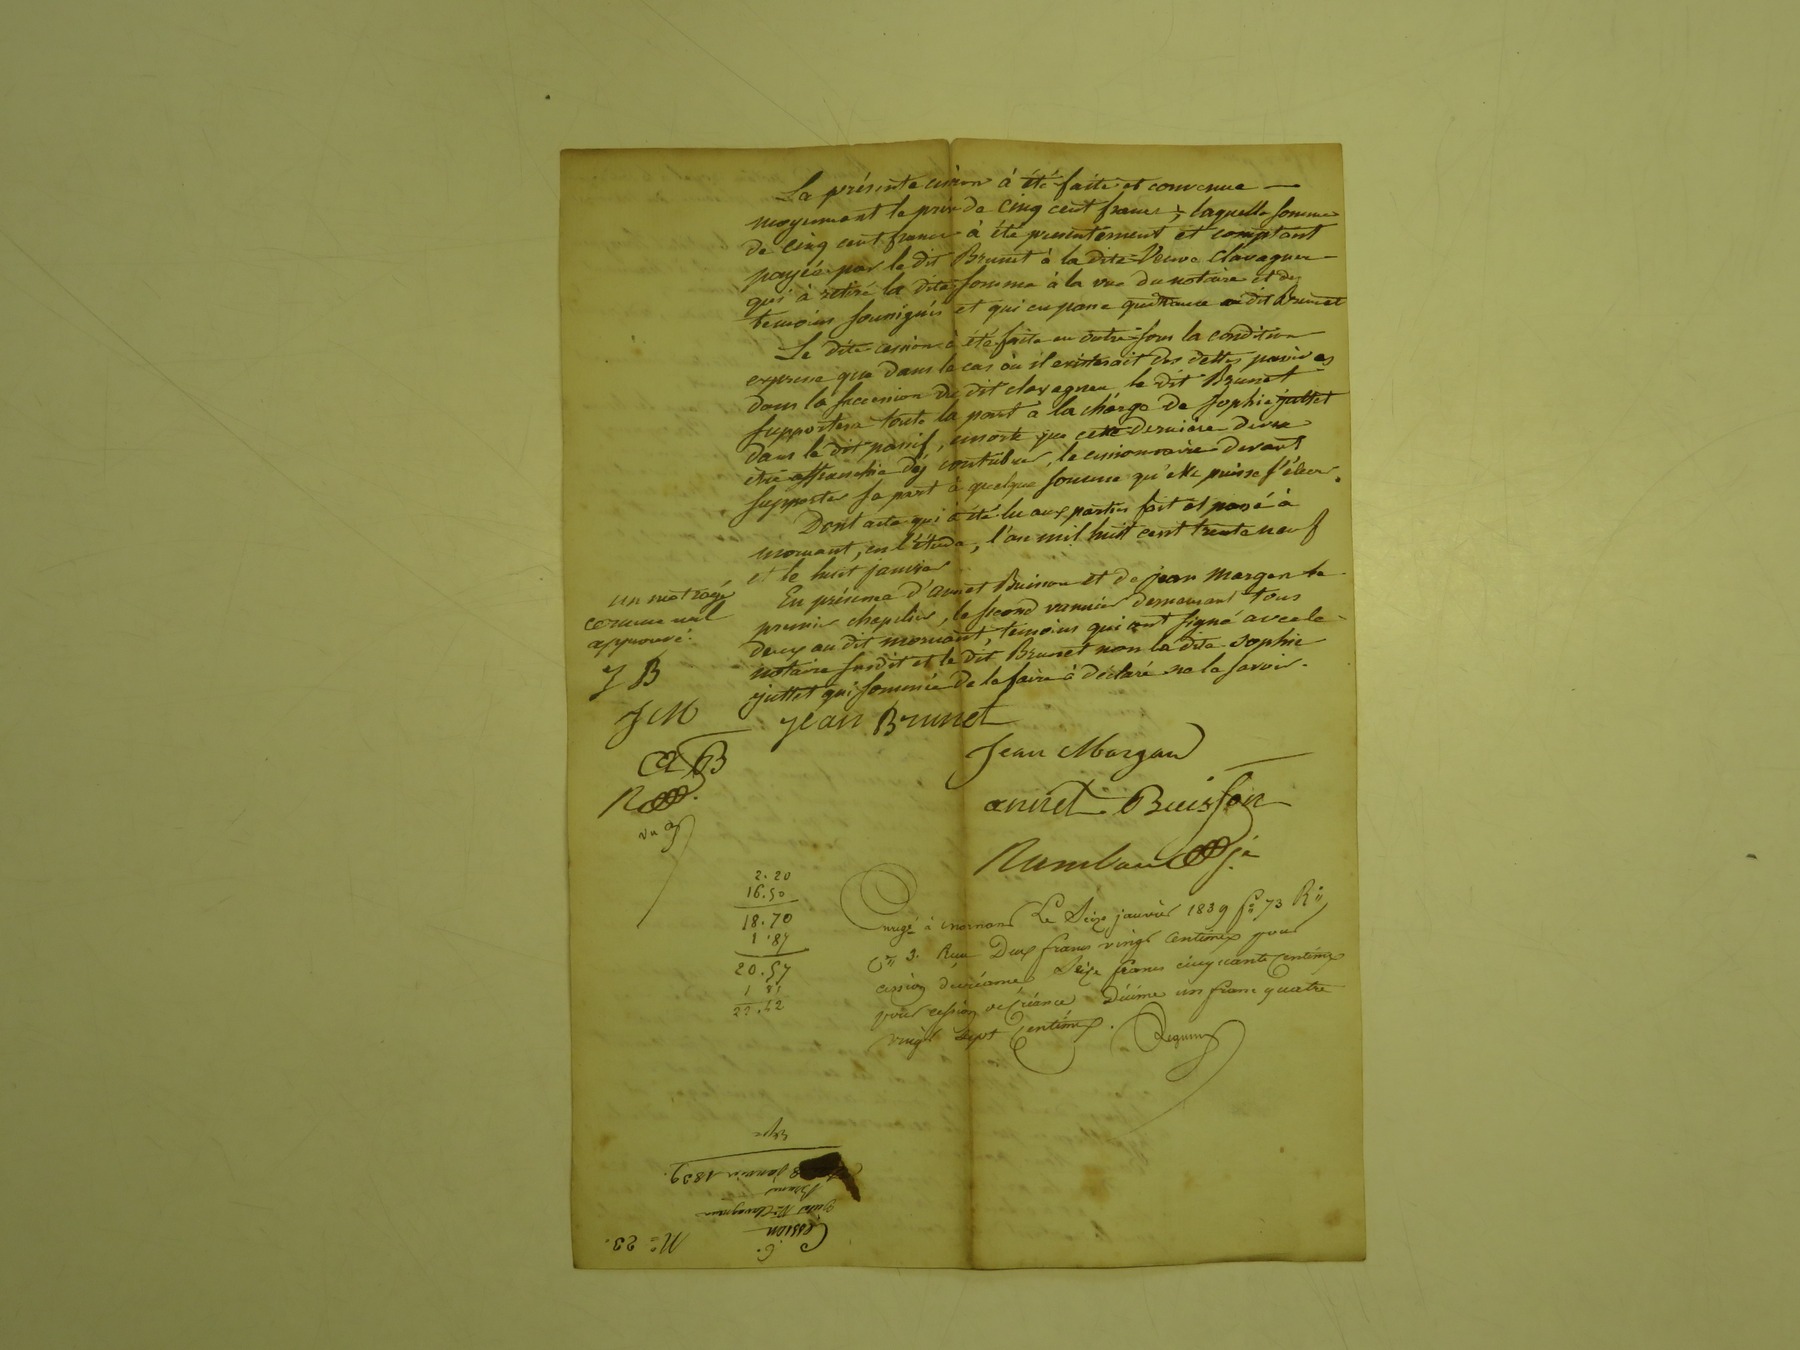 La présente cession à été faite et convenue —
moyennant le prix de Cinq cent francs, laquelle somme
de Cinq cent francs à été presentement et comptant
payée par le dit Brunet à la dite Veuve Clavagneu
qui à retiré la dite somme à la vue du notaire et des
temoins soussignés et qui en passe quittance au dit Brunet
La dite cession à été faite en outre sous la condition
expresse que dans le cas où il existerait des dettes passives
dans la succession du dit clavagneu le dit Brunet
supportera toute la part à la charge de Sophie juttet
dans le dit passif, ensorte que cette dernière devra
être affranchie d'y contribuer, le cessionnaire devant
supporter sa part à quelque somme qu'elle puisse s'élever.
Dont acte qui à été lu aux parties fait et passé à
mornant, en l'étude, l'an mil huit cent trente neuf
et le huit janvier
En présence d'annet Buisson et de jean Margan le
premier chapelier, le second vannier demeurant tous
deux au dit mornant, témoins qui ont signé avec le
notaire susdit et le dit Brunet non la dite Sophie
juttet qui sommée de le faire à déclaré ne le savoir.
un mot rayé
comme nul
approuvé.
J B
J M
A B
R
Vu
Jean Brunet
Jean Margan
annet Buisson
2.20
16.50
18.70
1.87
20.57
22.62
à mornant Le Seize janvier 1839 f° 73 R°
C° 3. Reçu Deux francs vingt centimes pour
cession Seize francs cinquante centimes
pour cession de créance Décime un franc quatre
vingt sept centimes.
N° 23.
Cession
Brunet
8 Janvier 1839.